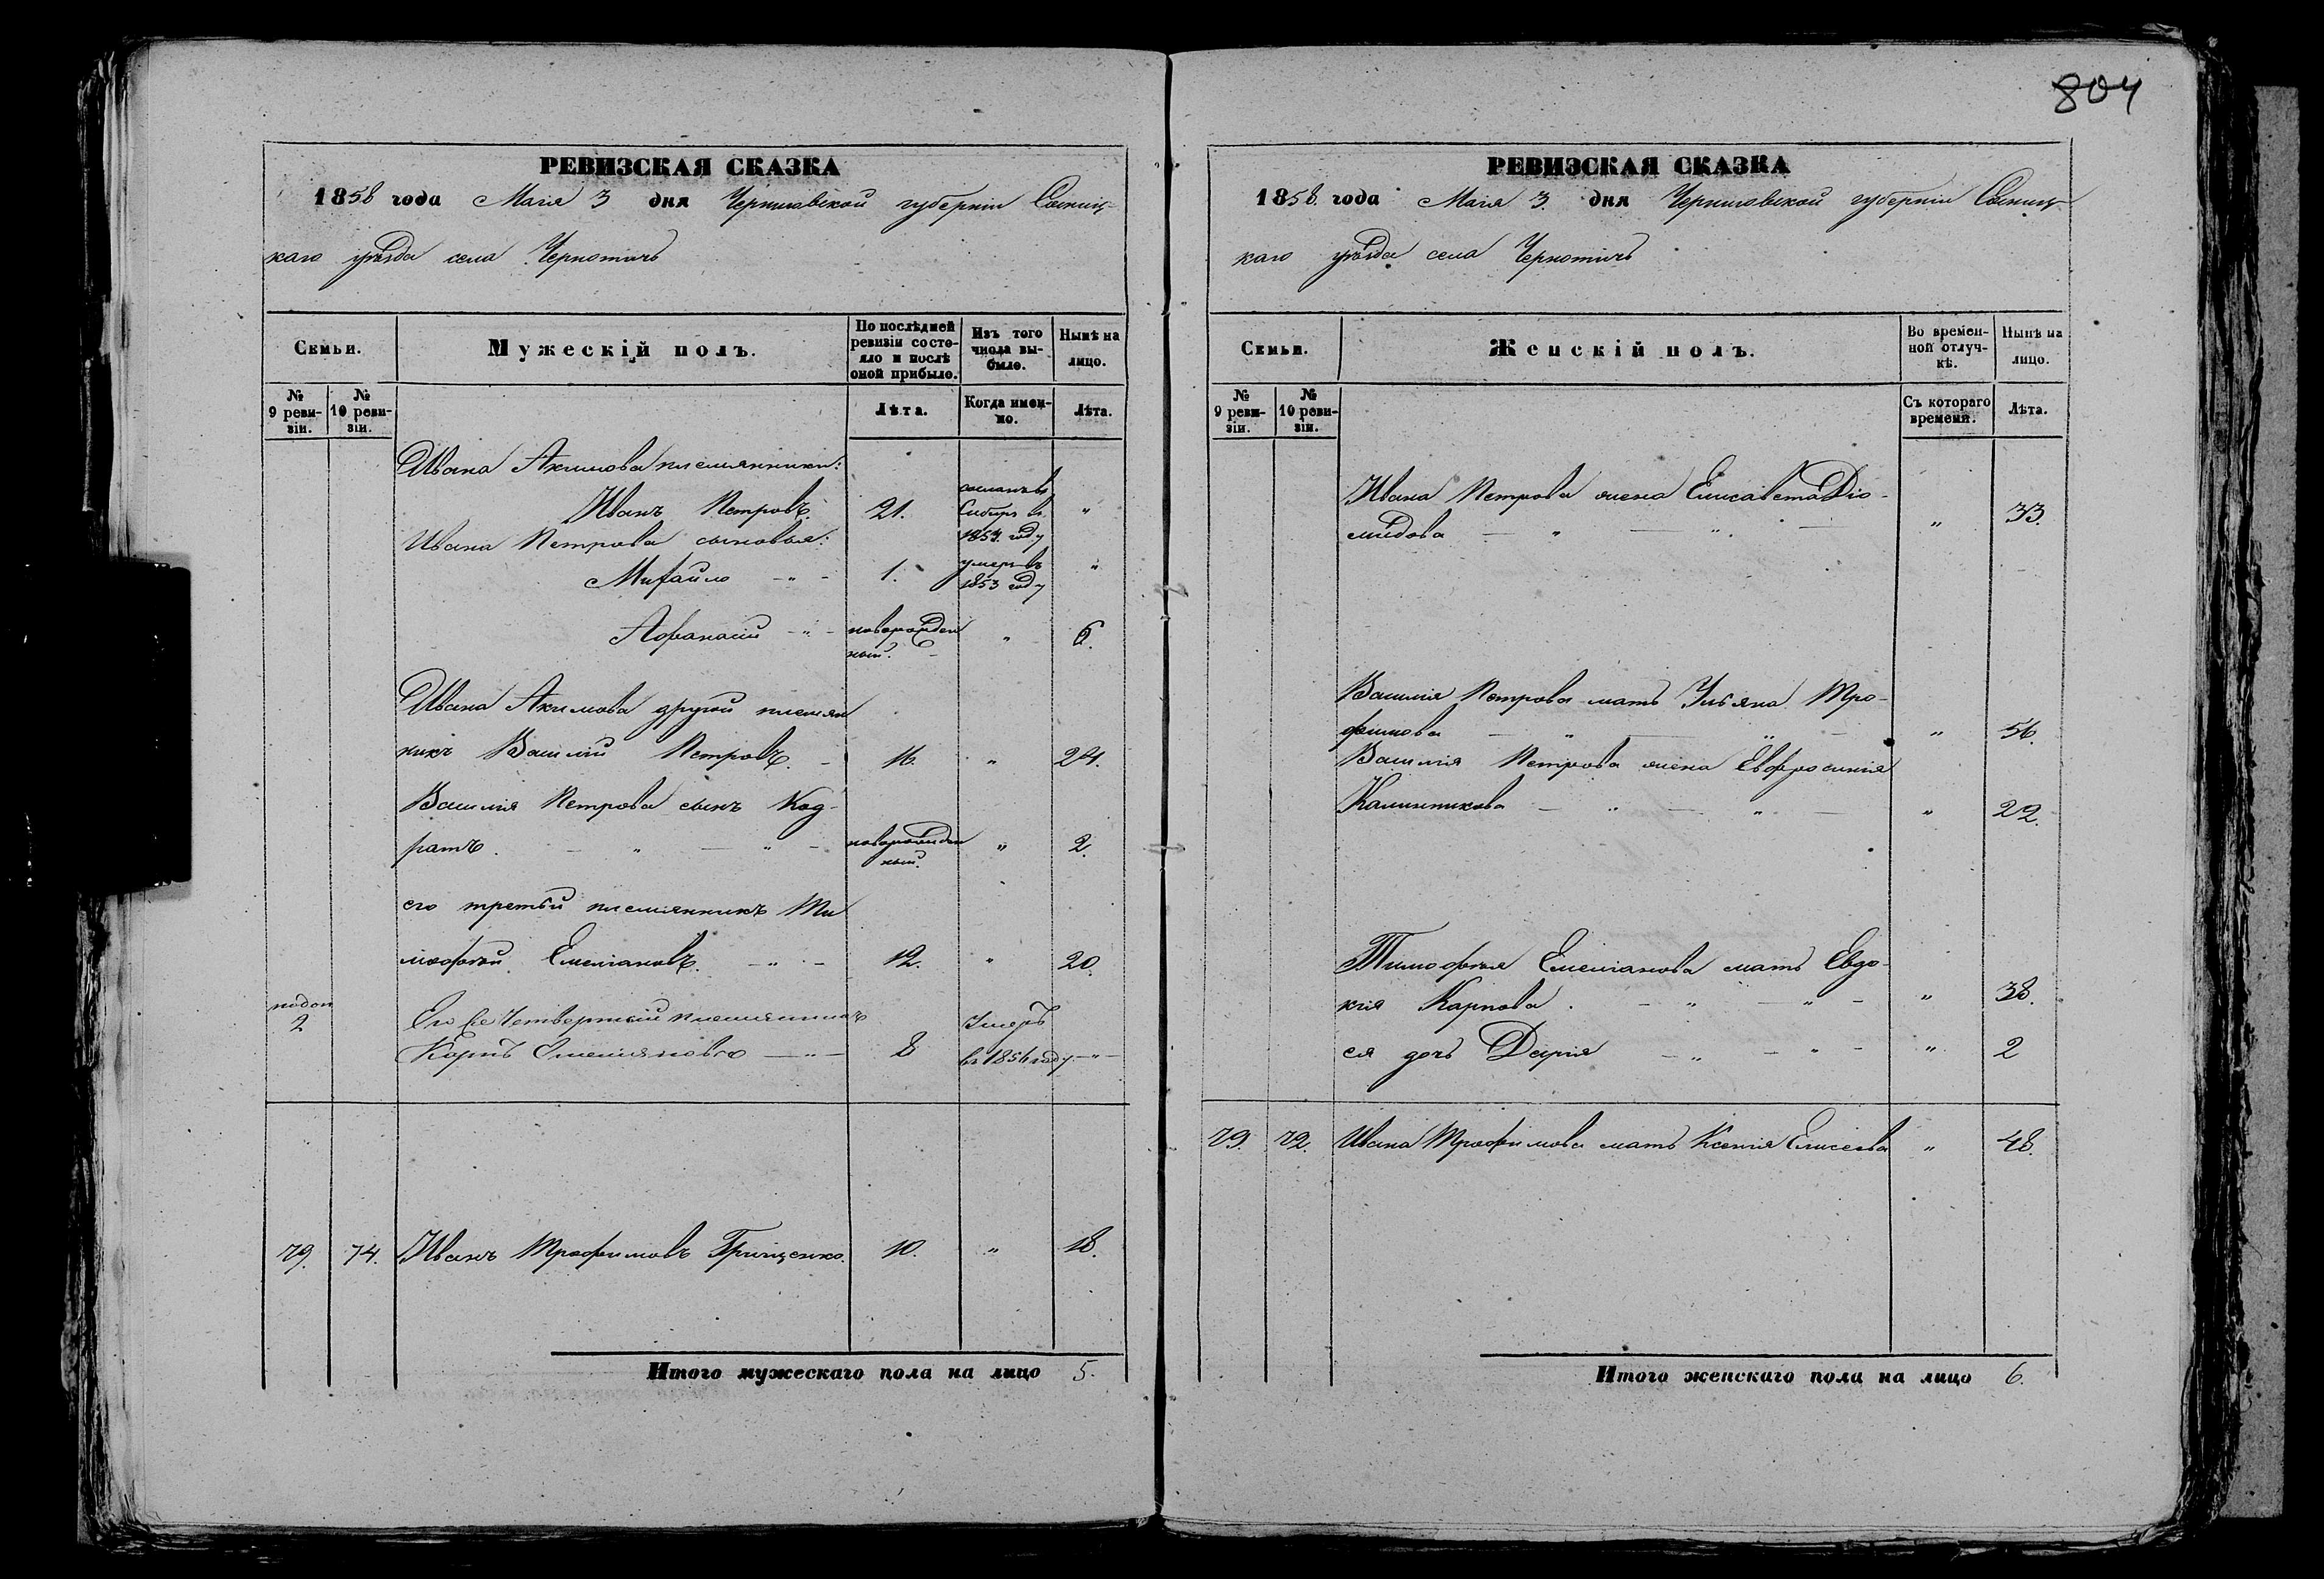 804
РЕВИЗСКАЯ СКАЗКА
1858 года Мая 3 дня Черниговской губернии Сосниц-
каго уѣзда села Чернотичъ
Семьи.
Мужескій полъ.
По послѣдней ревизіи состояло и послѣ оной прибыло.
Изъ того числа выбыло.
Нынѣ на лицо.
№ 9 ревизіи.
№ 10 ревизіи.
Лѣта.
Когда именно.
Лѣта.
Ивана Акимова племянники:
Иванъ Петровъ. 21. сосланъ въ Сибирь въ 1854 году "
Ивана Петрова сыновья:
Михайло - " - 1. умеръ въ 1853 году "
Афанасій - " - новорожденный. " 6.
Ивана Акимова другой племян
никъ Василій Петровъ. - 16. " 24.
Василія Петрова сынъ Код-
ратъ. - " - " - новорожденный. " 2.
его третій племянникъ Ти
мофей Емельяновъ. - " - 12. " 20.
2 Его же четвертый племянникъ
Карпъ Емельяновъ - " - 8 Умеръ въ 1856 году - " -
79. 74. Иванъ Трофимовъ Грищенко. 10. " 18.
Итого мужескаго пола на лицо 5.
РЕВИЗСКАЯ СКАЗКА
1858 года Мая 3. дня Черниговской губерніи Сосниц-
каго уѣзда села Чернотичъ
Семьи.
Женскій полъ.
Во временной отлучкѣ.
Нынѣ на лицо.
№ 9 ревизіи.
№ 10 ревизіи.
Съ котораго времени.
Лѣта.
Ивана Петрова жена Елисавета Діо-
мидова - " - " - " 33.
Василія Петрова мать Ульяна Тро-
фимова - " - " - " 56.
Василія Петрова жена Евфросинія
Калинникова - " - " - " 22.
Тимофея Емельянова мать Евдо-
кія Карпова. - " - " - " 38.
ея дочь Дарія - " - " - " 2
79. 72. Ивана Трофимова мать Ксенія Елисеева " 48.
Итого женскаго пола на лицо 6.